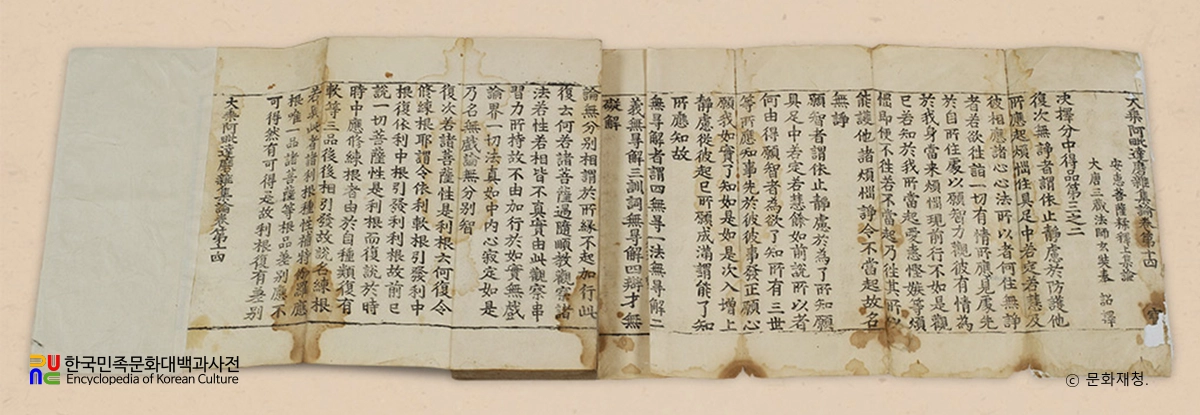 大乘阿毗達磨雜集論卷第十四
安慧菩薩糅釋
大唐三藏法師玄奘奉 詔譯
決擇分中得品第三之二
復次無諍者謂依止靜慮於防護他
所應起煩惱住具足中若定若慧及
彼相應諸心心法所以者何住無諍
者若欲往詣一切有情所應見處先
於自所住處以願智力觀彼有情為
於我身當來煩惱現前行不如是觀
已若知於我所當起愛恚慳嫉等煩
惱即便不往若不當起乃往其所以
能護他諸煩惱諍令不當起故名
無諍
願智者謂依止靜慮於為了所知願
具足中若定若慧餘如前說所以者
何由得願智者為欲了知所有三世
等所應知事先於彼彼事發正願心
願我如實了知如是如是次入增上
靜慮從彼起已所願成滿謂能了知
所應知故
無㝵解者謂四無㝵一法無㝵解二
義無㝵解三訓詞無㝵解四辯才無
礙解
論無分別相謂於所緣不起加行此
復云何若諸菩薩過隨順教觀察諸
法若性若相皆不真實由此觀察串
習力所持故不由加行於如實無戲
論界一切法真如中內心寂定如是
乃名無戲論無分別智
復次若諸菩薩性是利根云何復令
修練根耶謂令依利軟根引發利中
根復依利中根引發利利根故前已
說一切菩薩性是利根而復說於時
時中應修練根者由於自種類復有
軟等三品後後相引發故說名練根
若異此者諸利根種性補特伽羅應
根唯一品諸菩薩等根品差別應不
可得然有可得是故利根復有差別
大乘阿毗達磨雜集論卷第十四
한국민족문화대백과사전
Encyclopedia of Korean Culture
ⓒ 문화재청.